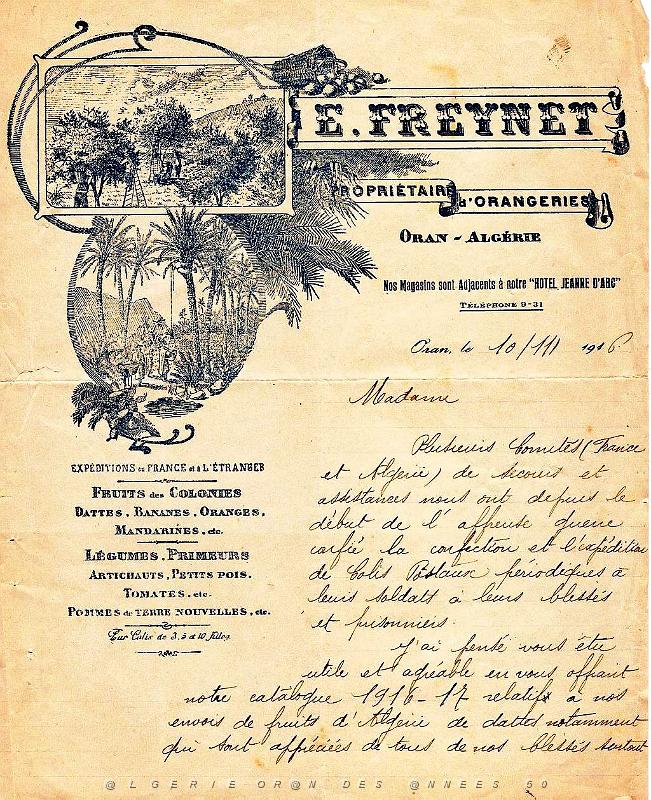 E. FREYNET
PROPRIÉTAIRE
d'ORANGERIES
ORAN - ALGÉRIE
Nos Magasins sont Adjacents à notre "HOTEL JEANNE D'ARC"
TÉLÉPHONE 9-31
Oran, le 10/III 1916
Madame
Plusieurs Comités (France
et Algérie) de secours et
assistances nous ont depuis le
début de l'affreuse guerre
confié la confection et l'expédition
de Colis Postaux périodiques à
leurs soldats à leurs blessés
et prisonniers.
J'ai pensé vous être
utile et agréable en vous offrant
notre catalogue 1916-17 relatif à nos
envois de fruits d'Algérie de dattes notamment
qui sont appréciées de tous de nos blessés surtout
EXPÉDITIONS en FRANCE et à L'ÉTRANGER
FRUITS des COLONIES
DATTES, BANANES, ORANGES,
MANDARINES, etc.
LÉGUMES, PRIMEURS
ARTICHAUTS, PETITS POIS,
TOMATES, etc.
POMMES de TERRE NOUVELLES, etc.
Par Colis de 3, 5 et 10 kilos
@LGERIE OR@N DES @NNEES 50